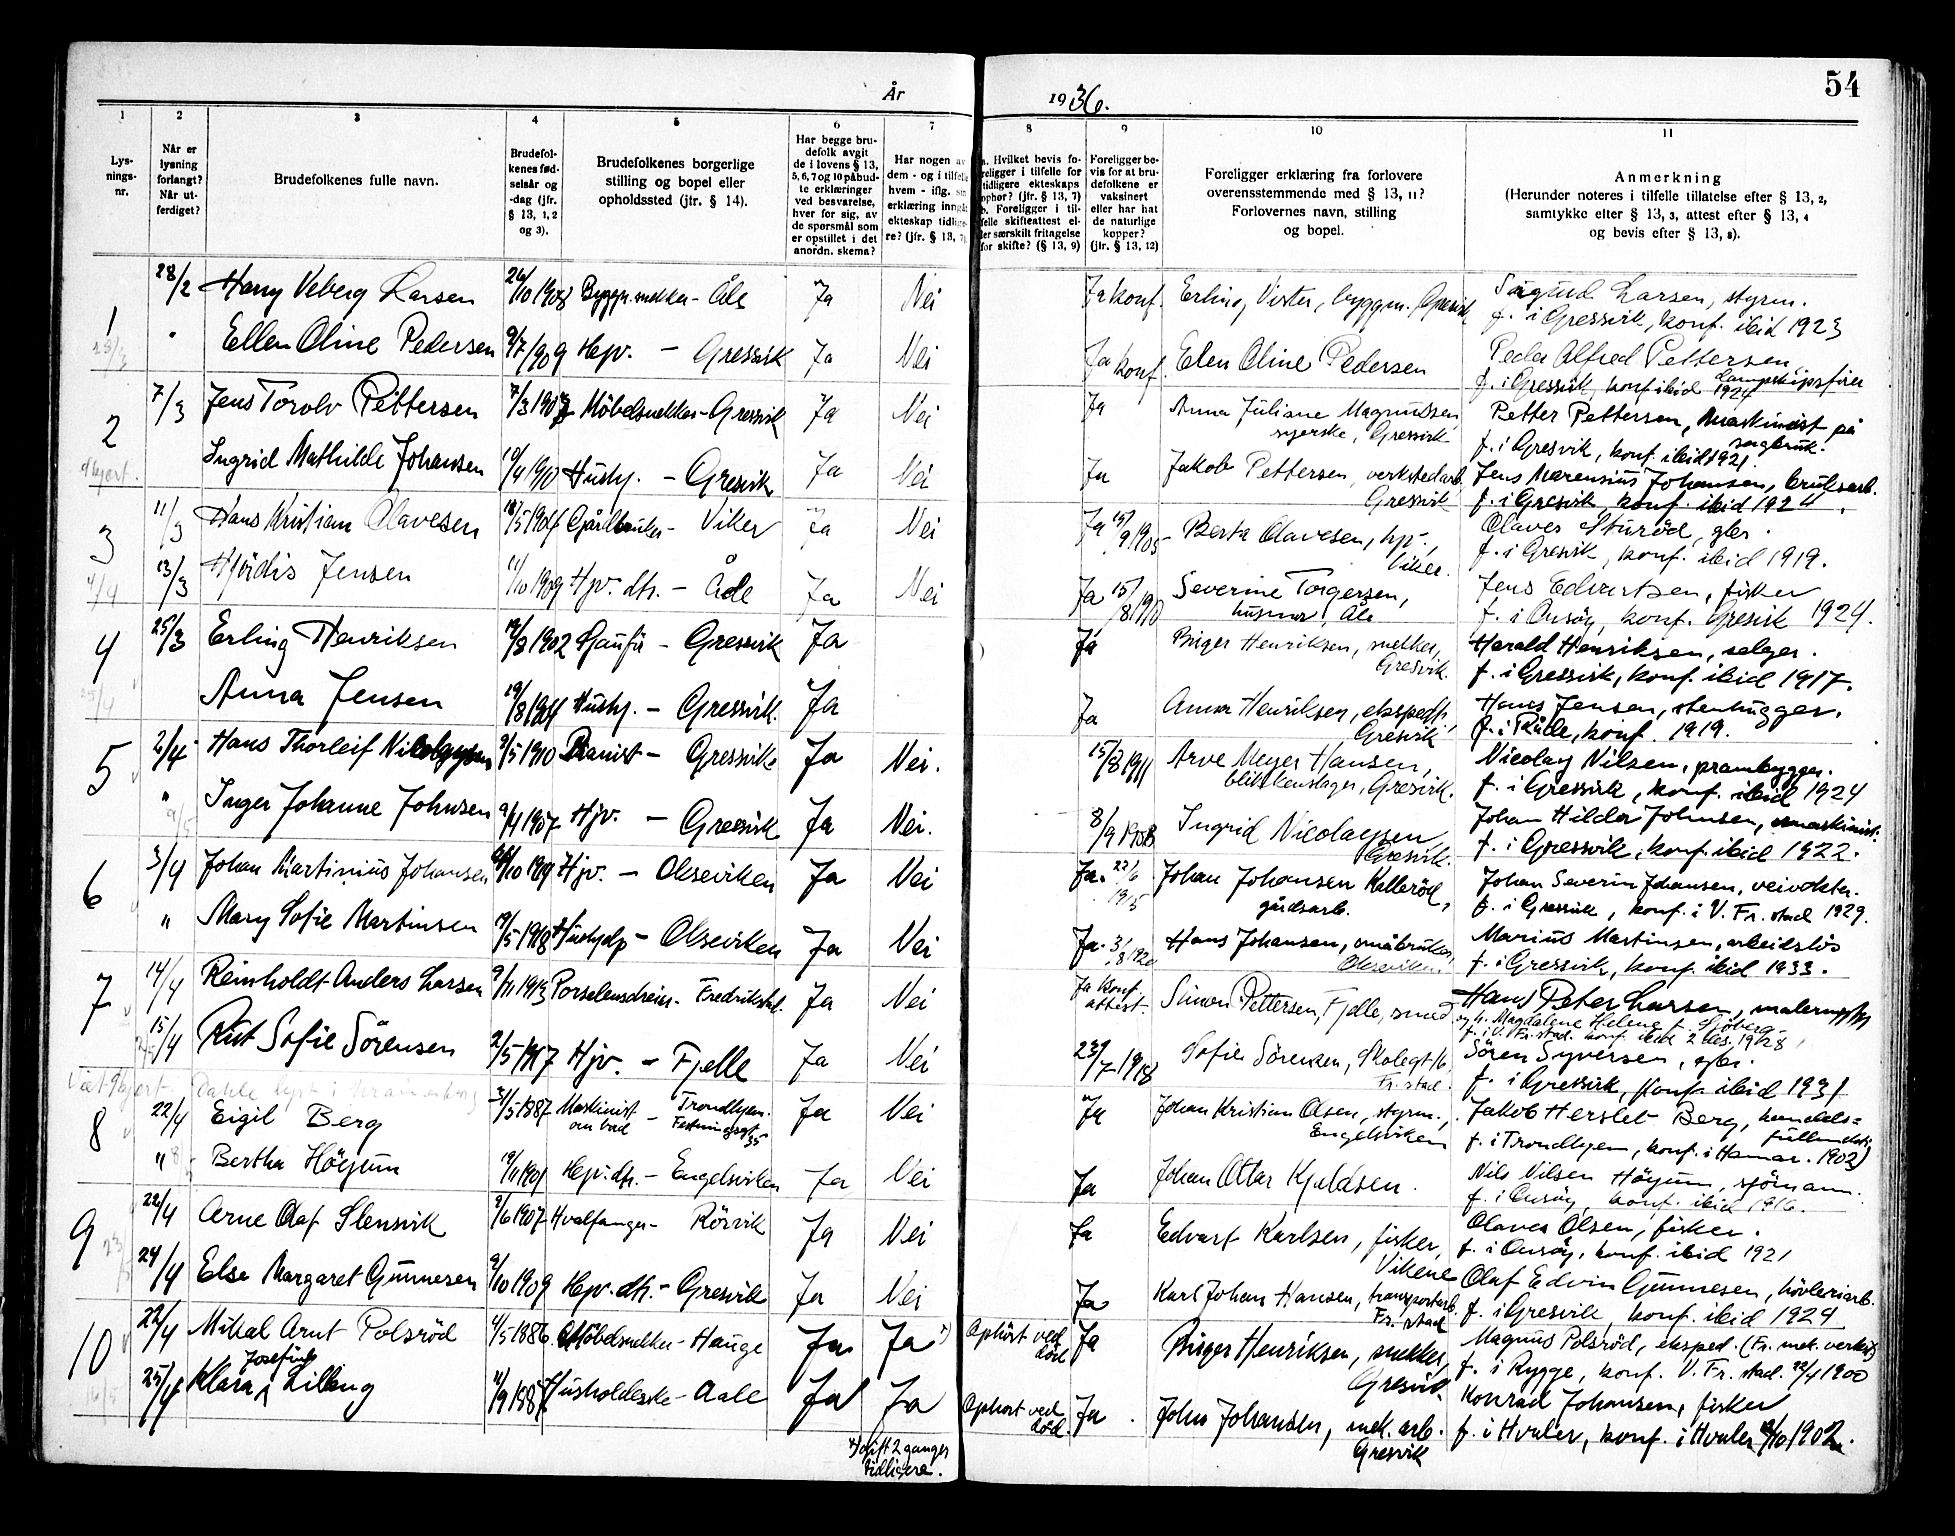 54
År 1936.
1
2
3
4
5
6
7
8
9
10
11
Lys-
nings-
nr.
Når er
lysning
forlangt?
Når ut-
ferdiget?
Brudefolkenes fulle navn.
Brudefol-
kenes fød-
selsår og
-dag (jfr.
§ 13, 1, 2
og 3).
Brudefolkenes borgerlige
stilling og bopel eller
opholdssted (jfr. § 14).
Har begge bru-
defolk avgit
de i lovens § 13,
5, 6, 7 og 10 påbud-
te erklæringer
ved besvarelse,
hver for sig, av
de spørsmål som
er opstillet i det
anordn. skema?
Har nogen av
dem - og i tilfelle
hvem - iflg. sin
erklæring inngått
ekteskap tidlige-
re? (jfr. § 13, 7)
a. Hvilket bevis fo-
religger i tilfelle for
tidligere ekteskaps
ophør? (jfr. § 13, 7)
b. Foreligger i til-
felle skifteattest el-
ler særskilt fritagelse
for skifte? (§ 13, 9)
Foreligger be-
vis for at bru-
defolkene er
vaksinert
eller har hat
de naturlige
kopper?
(jfr. § 13, 12)
Foreligger erklæring fra forlovere
overensstemmende med § 13, 11?
Forlovernes navn, stilling
og bopel.
Anmerkning
(Herunder noteres i tilfelle tillatelse efter § 13, 2,
samtykke efter § 13, 3, attest efter § 13, 4
og bevis efter § 13, 8).
1 28/2 Harry Veberg Larsen 26/10 1908 Byggn.snekker - Åle Ja Nei Ja konf. Erling Vister, byggm. Gresvik Sigurd Larsen, styrm.
f. i Gressvik, konf. ibid 1923
" Ellen Oline Pedersen 9/7 1909 Hjv. - Gressvik Ja Nei Ja konf. Elen Oline Pedersen Peder Alfred Pettersen
lampskipsfører
f. i Gressvik, konf. ibid 1924
2 7/3 Jens Torolv Pettersen 7/3 1907 Möbelsnekker - Gressvik Ja Nei Ja Anna Juliane Magnussen, Petter Pettersen, maskinist på
syerske, Gressvik sagbruk.
f. i Gresvik, konf. ibid 1921.
Ingrid Mathilde Johansen 10/4 1910 Hushj. - Gresvik Ja Nei Ja Jakob Pettersen, verkstedarb. Jens Marensius Johansen, bruksarb.
Gressvik f. i Gresvik, konf. ibid 1924.
3 11/3 Hans Kristian Olavesen 18/5 1904 Gårdbruker - Viker Ja Nei Ja 15/9 1905 Berta Olavesen, hp., Olaves Sturöd, gbr.
Viker. f. i Gresvik, konf. ibid 1919.
4/4 13/3 Hjördis Jensen 11/10 1909 Hjv. dtr. - Åle Ja Nei Ja 15/8 1910 Severine Torgersen, Jens Edvartsen, fisker
husmor, Åle f. i Onsöy, konf. Gresvik 1924.
4 25/3 Erling Henriksen 19/8 1902 Sjaufør - Gressvik Ja Ja Birger Henriksen, snekker, Harald Henriksen, selger.
Gresvik. f. i Gressvik, konf. ibid 1917.
Anna Jensen 19/8 1904 Hushj. - Gressvik. Ja Ja Anna Henriksen, ekspedtr., Hans Jensen, stenhugger.
Gresvik f. i Råde, konf. 1919.
5 2/4 Hans Thorleif Nicolaysen 9/5 1910 Pianist - Gressvik Ja Nei. 15/8 1911 Arve Meyer Hansen, Nicolay Nilsen, prambygger.
blikkenslager, Gresvik. f. i Gressvik, konf. ibid 1924
" Inger Johanne Johnsen 9/4 1907 Hjv. - Gressvik Ja Nei. 8/9 1908 Ingrid Nicolaysen, Johan Hilder Johnsen, maskinist.
Gresvik. f. i Gressvik, konf. ibid 1922.
6 3/4 Johan Martinius Johansen 10 1909 Hjv. - Okseviken Ja Nei Ja. 22/6 1915 Johan Johansen Kallerød, Johan Severin Johansen, veivokter.
gårdsarb. f. i Gressvik, konf. i V. Fr.stad 1929.
" Mary Sofie Martinsen 19/5 1918 Hushjelp - Okseviken Ja Nei Ja. 3/8 1920 Hans Johansen, småbruker, Marius Martinsen, arbeidsløs
Okseviken. f. i Gressvik, konf. ibid 1933.
7 14/4 Reinholdt Anders Larsen 9/11 1913 Porselensdreier - Fredrikstad Ja Nei Ja konf. attest. Simon Pettersen, Fjelle, smed Hans Peter Larsen, malerm.
og h. Magdalene Helene f. Sjöberg
f. i V. Fr.stad. konf. ibid 2 des. 1928
15/4 Rut Sofie Sörensen 2/5 1917 Hjv. - Fjelle Ja Nei 23/7 1918 Sofie Sörensen, Skolegt 16 Sören Syversen, gbr.
Fr.stad. f. i Gressvik, konf. ibid 1931
8 22/4 Eigil Berg 31/5 1887 Maskinist - Trondhjem. Ja Nei Ja Johan Kristian Olsen, styrm., Jakob Herslet Berg, handels-
om bord Festningsgt 35 Engelsviken fullmektig
f. i Trondhjem, konf. i Hamar. 1902
" Bertha Höyum 19/11 1901 Hjv. dtr. - Engelsviken Ja Nei Ja Johan Ottar Kjeldsen. Nils Nilsen Höyum, sjömann.
f. i Onsöy, konf. ibid 1916.
9 22/4 Arne Olaf Slensvik 9/6 1907 Hvalfanger - Rörvik Ja Nei Ja Edvart Karlsen, fisker, Olaves Olsen, fisker.
Vikene f. i Onsöy, konf. ibid 1921
24/4 Else Margaret Gunnesen 2/10 1909 Hjv. dtr. - Gresvik Ja Nei Ja Karl Johan Hansen, transportarb. Olaf Edvin Gunnesen, hövleriarb.
Fr.stad f. i Gresvik, konf. ibid 1924
10 22/4 Mikal Arnt Polsröd 4/5 1886 Möbelsnekker - Hauge Ja Ja *) Ophört ved död Ja Birger Henriksen, snekker, Magnus Polsröd, eksped. (Fr. mek. verksted)
Gresvik f. i Rygge, konf. V. Fr.stad. 22/4 1900
25/4 Klara Josefine Lilleng 11/9 1887 Husholderske - Aale Ja Ja Ophört ved död. Ja John Johansen, mek. arb. Konrad Johansen, fisker
Gresvik f. i Hvaler, konf. i Hvaler 9/10 1902.
*) gift 2 ganger
tidligere.